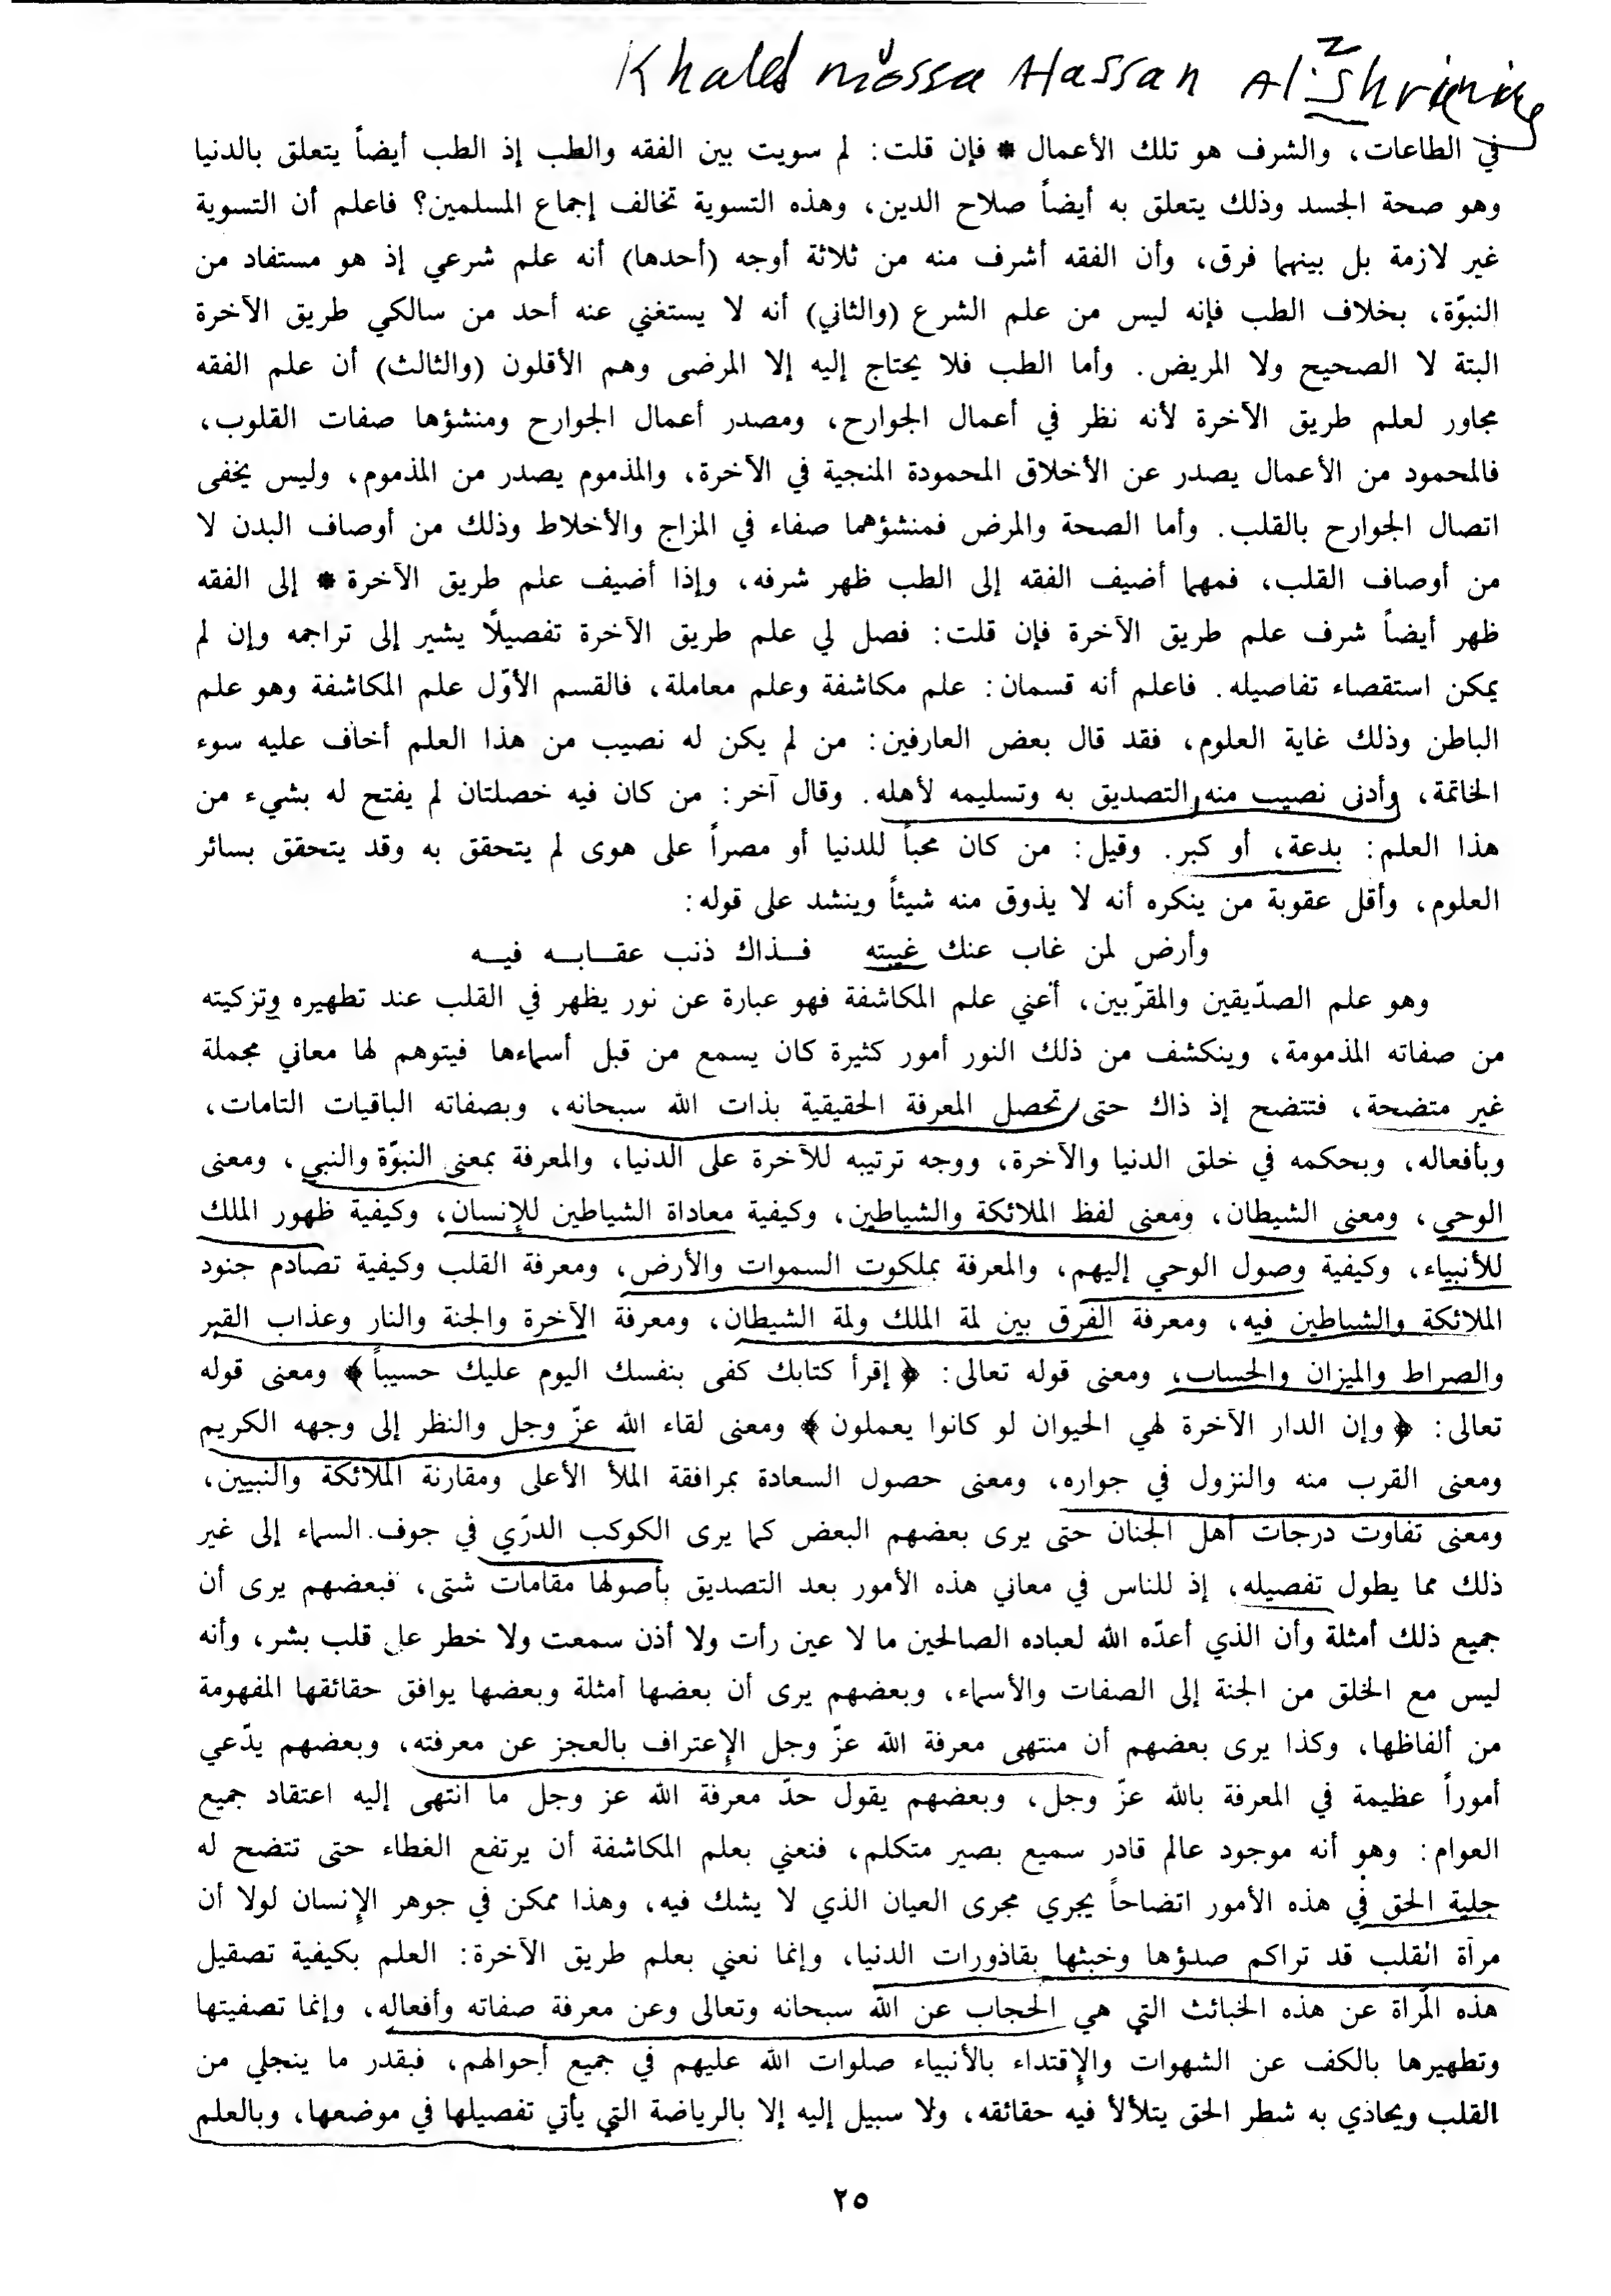 Khaled mossa Hassan
في الطاعات، والشرف هو تلك الأعمال * فإن قلت: لم سويت بين الفقه والطب إذ الطب أيضاً يتعلق بالدنيا
وهو صحة الجسد وذلك يتعلق به أيضاً صلاح الدين، وهذه التسوية تخالف إجماع المسلمين؟ فاعلم أن التسوية
غير لازمة بل بينهما فرق، وأن الفقه أشرف منه من ثلاثة أوجه (أحدها) أنه علم شرعي إذ هو مستفاد من
النبوّة، بخلاف الطب فإنه ليس من علم الشرع (والثاني) أنه لا يستغني عنه أحد من سالكي طريق الآخرة
البتة لا الصحيح ولا المريض. وأما الطب فلا يحتاج إليه إلا المرضى وهم الأقلون (والثالث) أن علم الفقه
مجاور لعلم طريق الآخرة لأنه نظر في أعمال الجوارح، ومصدر أعمال الجوارح ومنشؤها صفات القلوب،
فالمحمود من الأعمال يصدر عن الأخلاق المحمودة المنجية في الآخرة، والمذموم يصدر من المذموم، وليس يخفى
اتصال الجوارح بالقلب. وأما الصحة والمرض فمنشؤهما صفاء في المزاج والأخلاط وذلك من أوصاف البدن لا
من أوصاف القلب، فمهما أضيف الفقه إلى الطب ظهر شرفه، وإذا أضيف علم طريق الآخرة * إلى الفقه
ظهر أيضاً شرف علم طريق الآخرة فإن قلت: فصل لي علم طريق الآخرة تفصيلًا يشير إلى تراجمه وإن لم
يمكن استقصاء تفاصيله. فاعلم أنه قسمان: علم مكاشفة وعلم معاملة، فالقسم الأوّل علم المكاشفة وهو علم
الباطن وذلك غاية العلوم، فقد قال بعض العارفين: من لم يكن له نصيب من هذا العلم أخاف عليه سوء
الخاتمة، وأدنى نصيب منه التصديق به وتسليمه لأهله. وقال آخر: من كان فيه خصلتان لم يفتح له بشيء من
هذا العلم: بدعة، أو كبر. وقيل: من كان محباً للدنيا أو مصراً على هوى لم يتحقق به وقد يتحقق بسائر
العلوم، وأقل عقوبة من ينكره أنه لا يذوق منه شيئاً وينشد على قوله:
وأرض لمن غاب عنك غيبته فـذاك ذنب عقـابـه فيـه
وهو علم الصدّيقين والمقرّبين، أعني علم المكاشفة فهو عبارة عن نور يظهر في القلب عند تطهيره وتزكيته
من صفاته المذمومة، وينكشف من ذلك النور أمور كثيرة كان يسمع من قبل أسماءها فيتوهم لها معاني مجملة
غير متضحة، فتتضح إذ ذاك حتى تحصل المعرفة الحقيقية بذات الله سبحانه، وبصفاته الباقيات التامات،
وبأفعاله، وبحكمه في خلق الدنيا والآخرة، ووجه ترتيبه للآخرة على الدنيا، والمعرفة بمعنى النبوّة والنبي، ومعنى
الوحي، ومعنى الشيطان، ومعنى لفظ الملائكة والشياطين، وكيفية معاداة الشياطين للإنسان، وكيفية ظهور الملك
للأنبياء، وكيفية وصول الوحي إليهم، والمعرفة بملكوت السموات والأرض، ومعرفة القلب وكيفية تصادم جنود
الملائكة والشياطين فيه، ومعرفة الفرق بين لمة الملك ولمة الشيطان، ومعرفة الآخرة والجنة والنار وعذاب القبر
والصراط والميزان والحساب، ومعنى قوله تعالى: ﴿إقرأ كتابك كفى بنفسك اليوم عليك حسيباً﴾ ومعنى قوله
تعالى: ﴿وإن الدار الآخرة لهي الحيوان لو كانوا يعملون﴾ ومعنى لقاء الله عزّ وجل والنظر إلى وجهه الكريم
ومعنى القرب منه والنزول في جواره، ومعنى حصول السعادة بمرافقة الملأ الأعلى ومقارنة الملائكة والنبيين،
ومعنى تفاوت درجات أهل الجنان حتى يرى بعضهم البعض كما يرى الكوكب الدرّي في جوف السماء إلى غير
ذلك مما يطول تفصيله، إذ للناس في معاني هذه الأمور بعد التصديق بأصولها مقامات شتى، فبعضهم يرى أن
جميع ذلك أمثلة وأن الذي أعدّه الله لعباده الصالحين ما لا عين رأت ولا أذن سمعت ولا خطر على قلب بشر، وأنه
ليس مع الخلق من الجنة إلى الصفات والأسماء، وبعضهم يرى أن بعضها أمثلة وبعضها يوافق حقائقها المفهومة
من ألفاظها، وكذا يرى بعضهم أن منتهى معرفة الله عزّ وجل الإعتراف بالعجز عن معرفته، وبعضهم يدّعي
أموراً عظيمة في المعرفة بالله عزّ وجل، وبعضهم يقول حدّ معرفة الله عز وجل ما انتهى إليه اعتقاد جميع
العوام: وهو أنه موجود عالم قادر سميع بصير متكلم، فنعني بعلم المكاشفة أن يرتفع الغطاء حتى تتضح له
جلية الحق في هذه الأمور اتضاحاً يجري مجرى العيان الذي لا يشك فيه، وهذا ممكن في جوهر الإنسان لولا أن
مرآة القلب قد تراكم صدؤها وخبثها بقاذورات الدنيا، وإنما نعني بعلم طريق الآخرة: العلم بكيفية تصقيل
هذه المرآة عن هذه الخبائث التي هي الحجاب عن الله سبحانه وتعالى وعن معرفة صفاته وأفعاله، وإنما تصفيتها
وتطهيرها بالكف عن الشهوات والإقتداء بالأنبياء صلوات الله عليهم في جميع أحوالهم، فبقدر ما ينجلي من
القلب ويحاذي به شطر الحق يتلألأ فيه حقائقه، ولا سبيل إليه إلا بالرياضة التي يأتي تفصيلها في موضعها، وبالعلم
٢٥